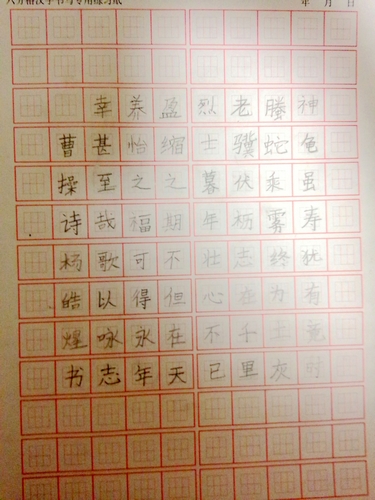 年 月 日
神龟虽寿犹有竟时
腾蛇乘雾终为土灰
老骥伏枥志在千里
烈士暮年壮心不已
盈缩之期不但在天
养怡之福可得永年
幸甚至哉歌以咏志
曹操诗杨皓煌书